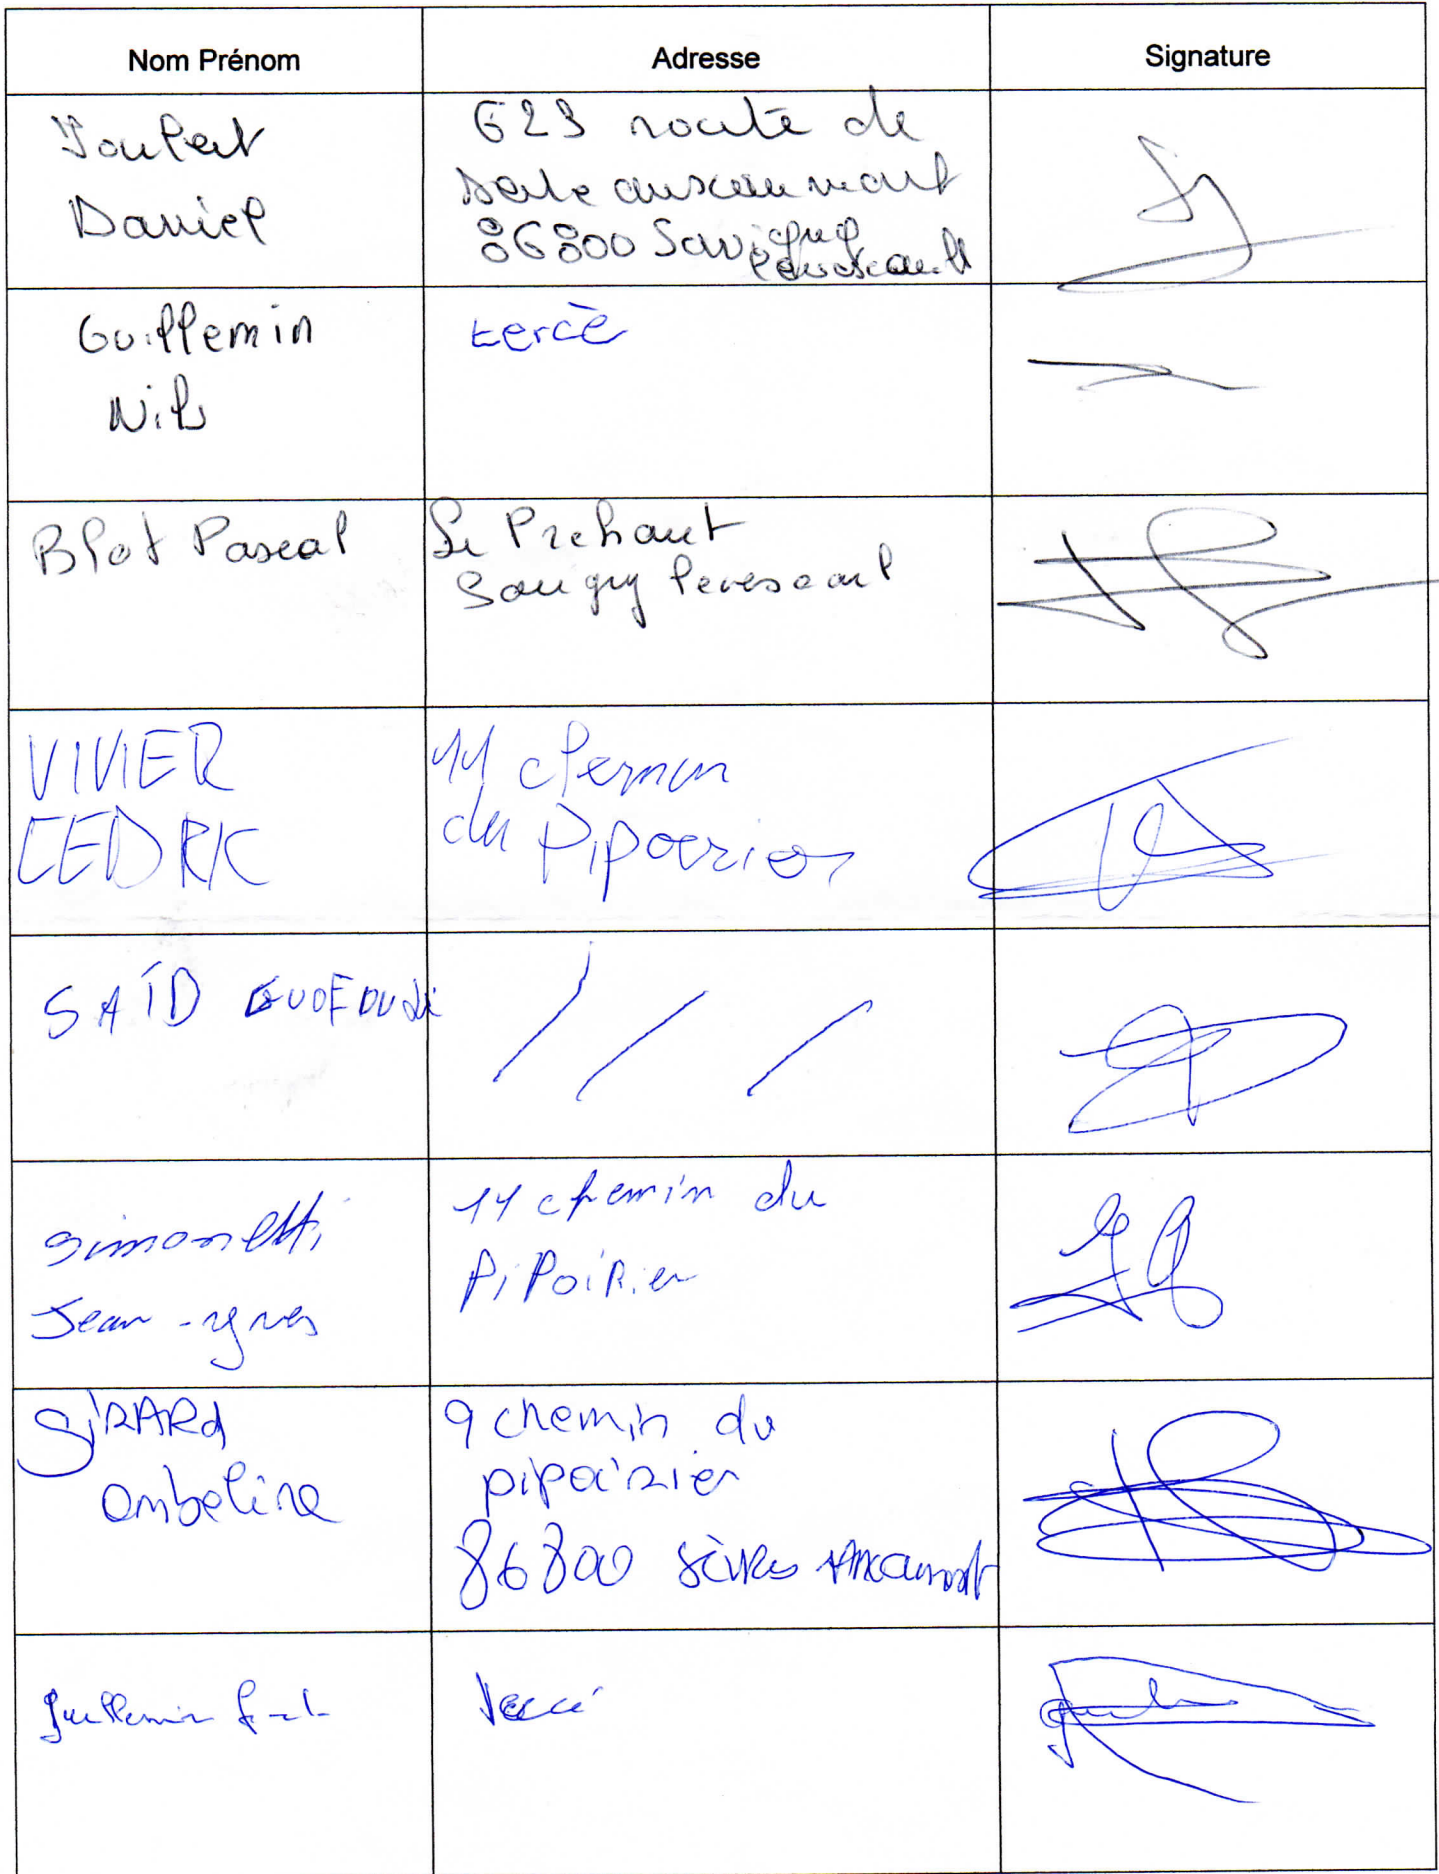 Nom Prénom
Adresse
Signature
Joubert
Daniel
623 route de
86800 Savigny
Guillemin
Nils
tercè
Blot Pascal
Le Prehaut
Savigny levescaul
VIVIER
CEDRIC
11 chemin
du Pipoirier
SAÏD
simonetti
Jean-yves
11 chemin du
PiPoiRier
GiRARd
Ombeline
9 chemin du
pipoirier
86800 sèvres Anxaumont
guillemin